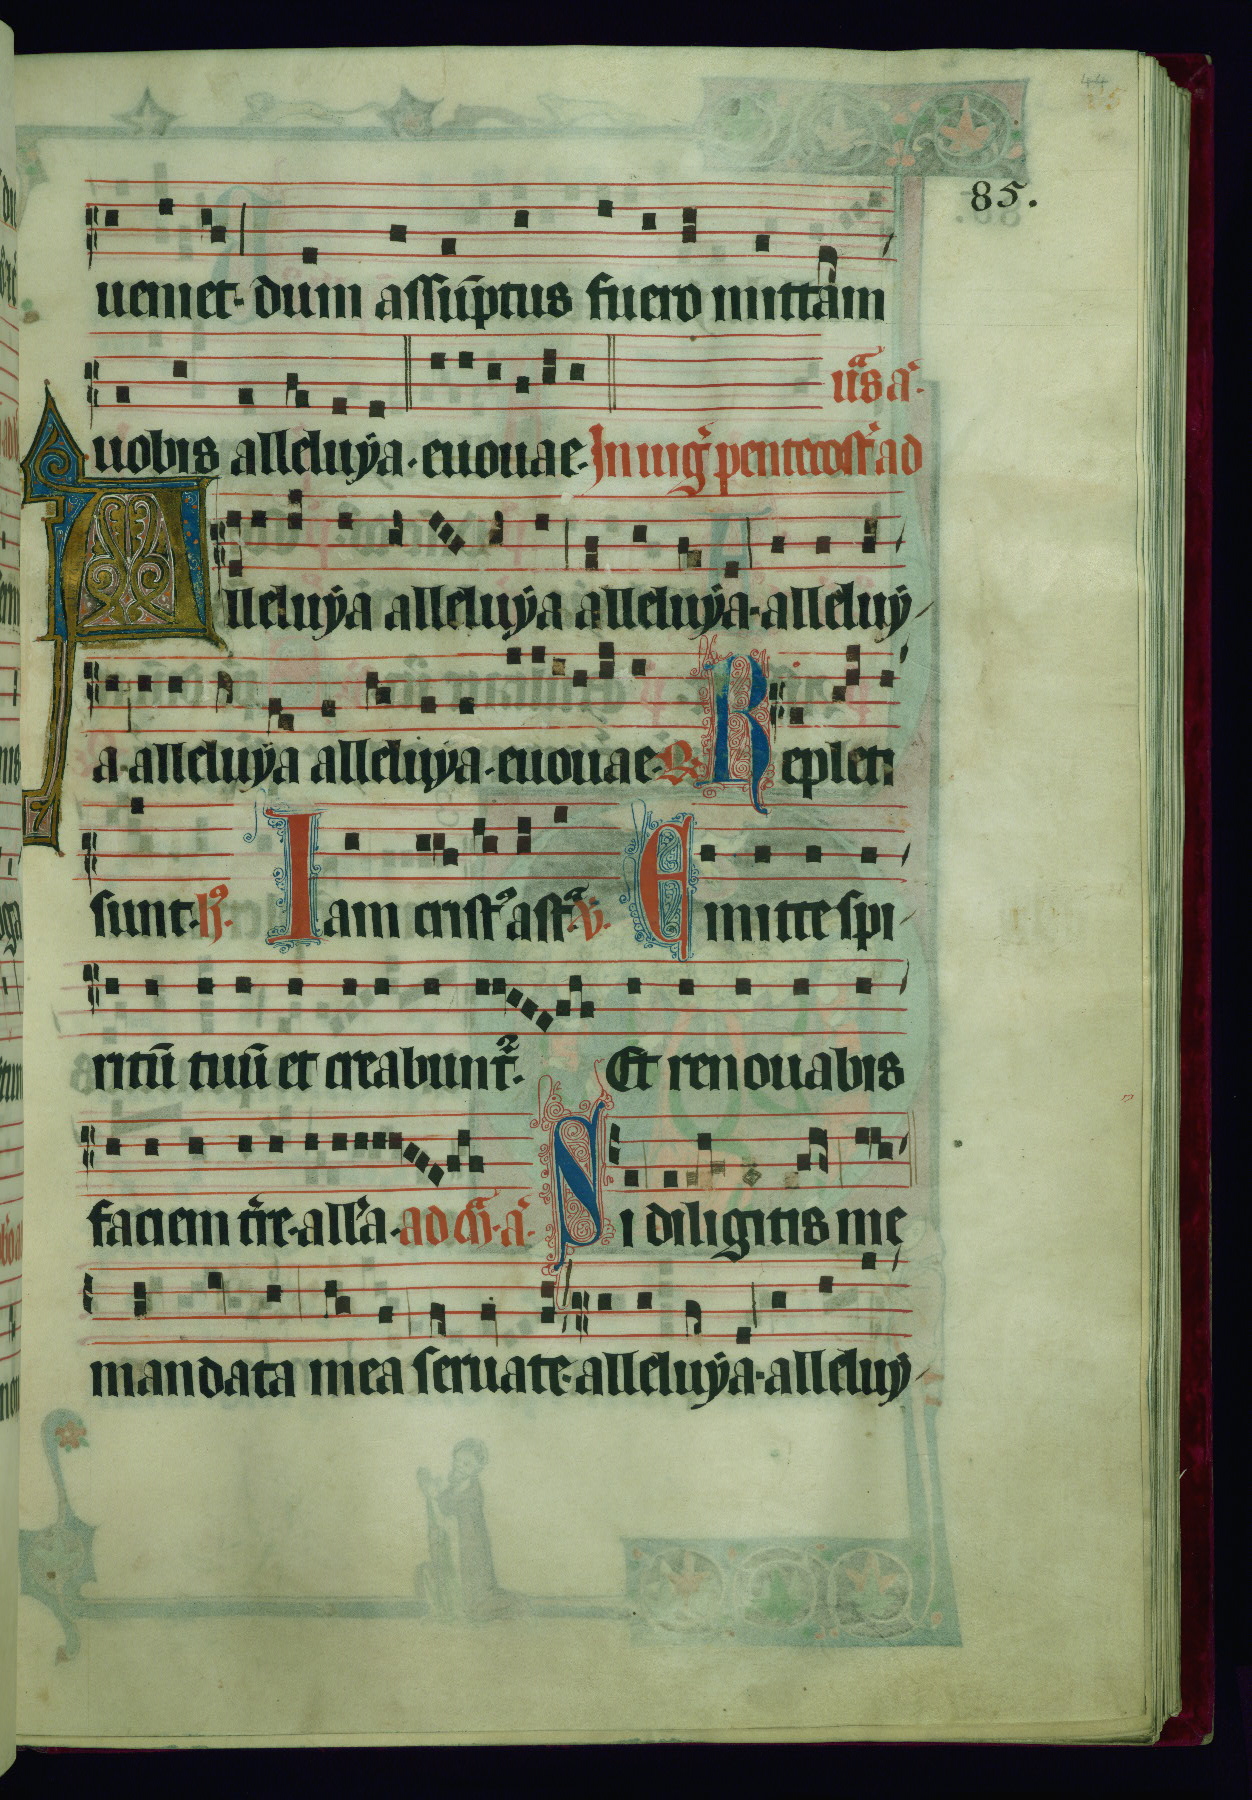 85.
ueniet. dum assūptus fuero mittam
uobis alleluÿa. euouae. In uig̉ pentecost̉ ad
ur̃s a̓.
Alleluÿa alleluÿa alleluÿa. alleluÿ
a. alleluÿa alleluÿa. euouae. R̃. Repleti
sunt. h̓. Iam crist᾽ ast̉. v̓. Emitte spi
ritū tuū et creabunt᾽. Et renouabis
faciem tr̃e. all̃a. ad m̃. a̓. Si diligitis me
mandata mea seruate. alleluÿa. alleluÿ